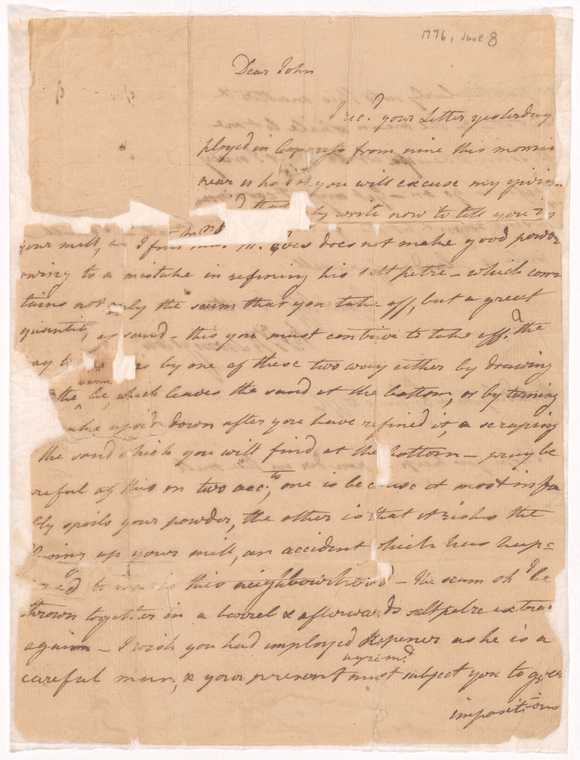 1776, June 8
Dear John
I rec.d your Letter yesterday
ployed in Congress from nine this mornin
near us he you will excuse my givin
write now to tell you is
your mill, as I find M.r does not make good powder
owing to a mistake in refining his saltpetre – which con
tains not only the scum that you take off, but a great
quantity of sand – this you must contrive to take off. the
by one of these two ways either by drawing
warm
the lie, which leaves the sand at the bottom, or by turning
the upside down after you have refined it, & scraping
the sand which you will find at the bottom – pray be
reful of this on two acc.ts, one is because it most infa
bly spoils your powder, the other is that it risks the
blowing up your mill, an accident which has hap=
in this neighbourhood – The scum sh.d be
thrown together in a barrel & afterwards saltpetre extrac
again – I wish you had employed as he is a
careful man, & your present must subject you to grea
impositions